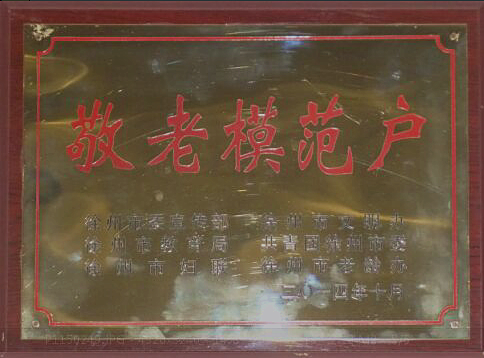 敬老模范户
徐州市委宣传部 徐州市文明办
徐州市教育局 共青团徐州市委
徐州市妇联 徐州市老龄办
二〇一四年十月